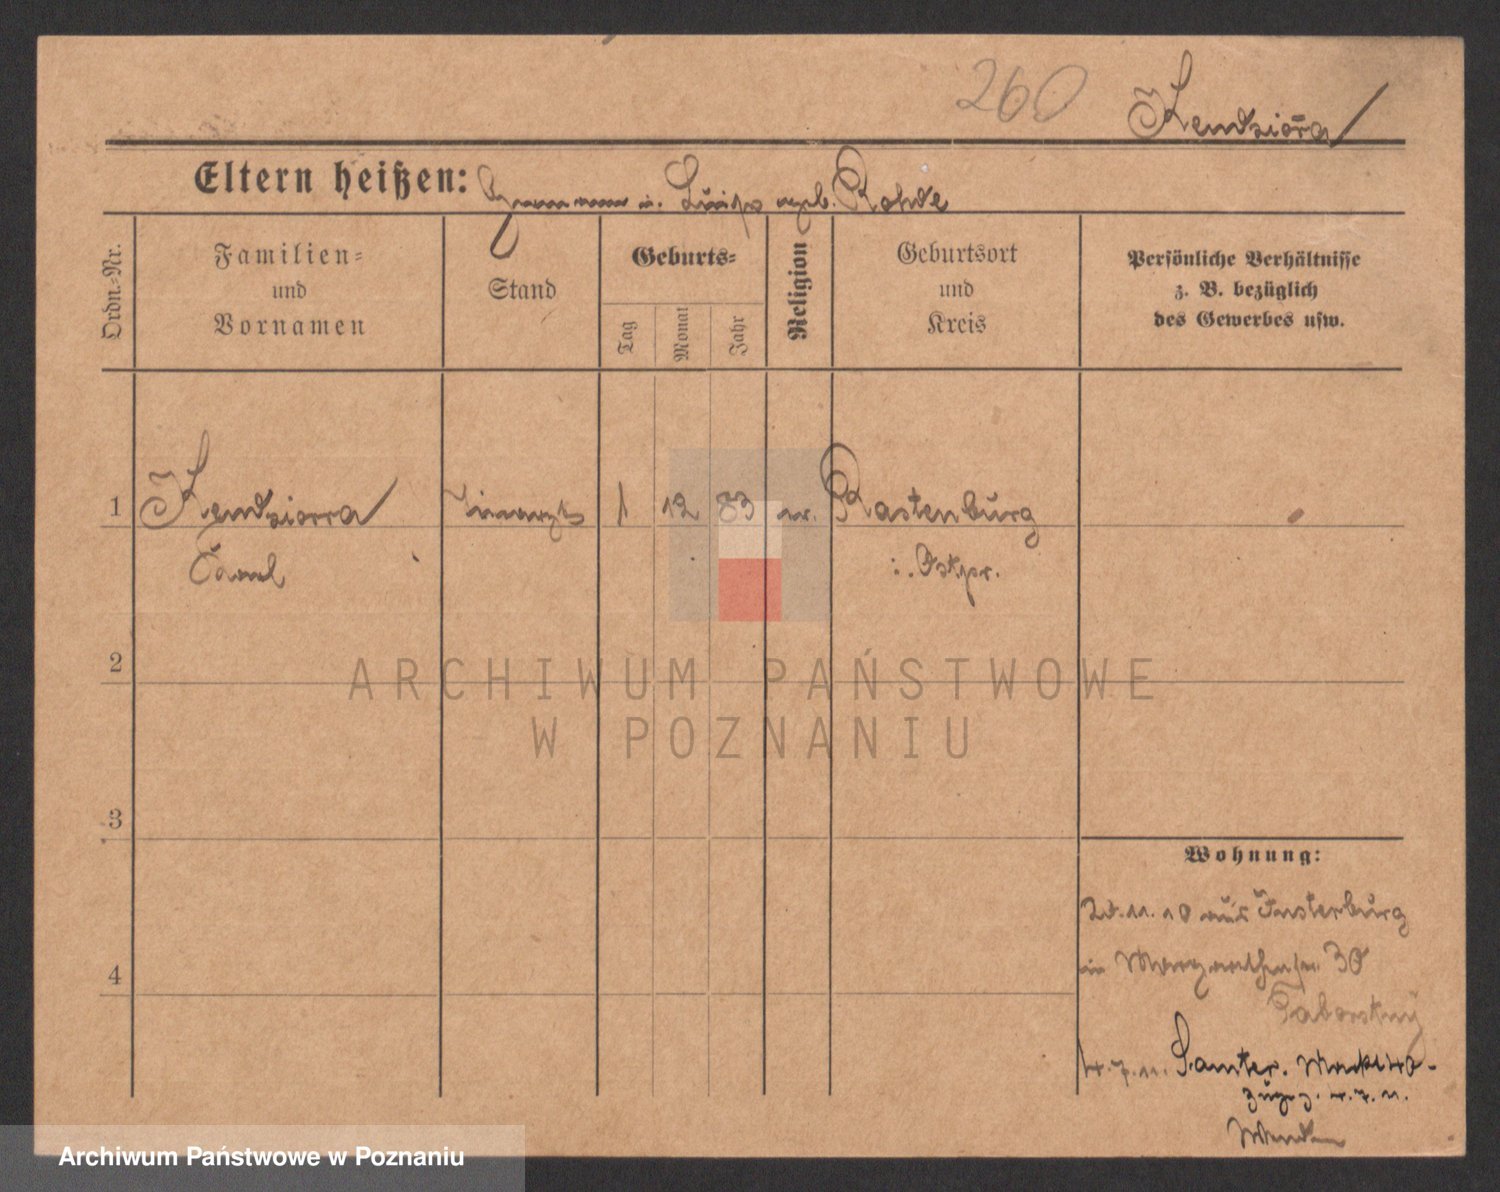 260
Kendziorra
Eltern heißen: Hermann u. Luise geb. Rohde
Ordn.-Nr.
Familien-
und
Vornamen
Stand
Geburts-
Tag
Monat
Jahr
Religion
Geburtsort
und
Kreis
Persönliche Verhältnisse
z. B. bezüglich
des Gewerbes usw.
1 Kendziorra 1 12 83 Rastenburg
Carl i. Ostpr.
2
3
4
Wohnung:
11. 10 aus Insterburg
in 30
Taborsky
4.7.11. Samter.
ARCHIWUM PAŃSTWOWE
W POZNANIU
Archiwum Państwowe w Poznaniu